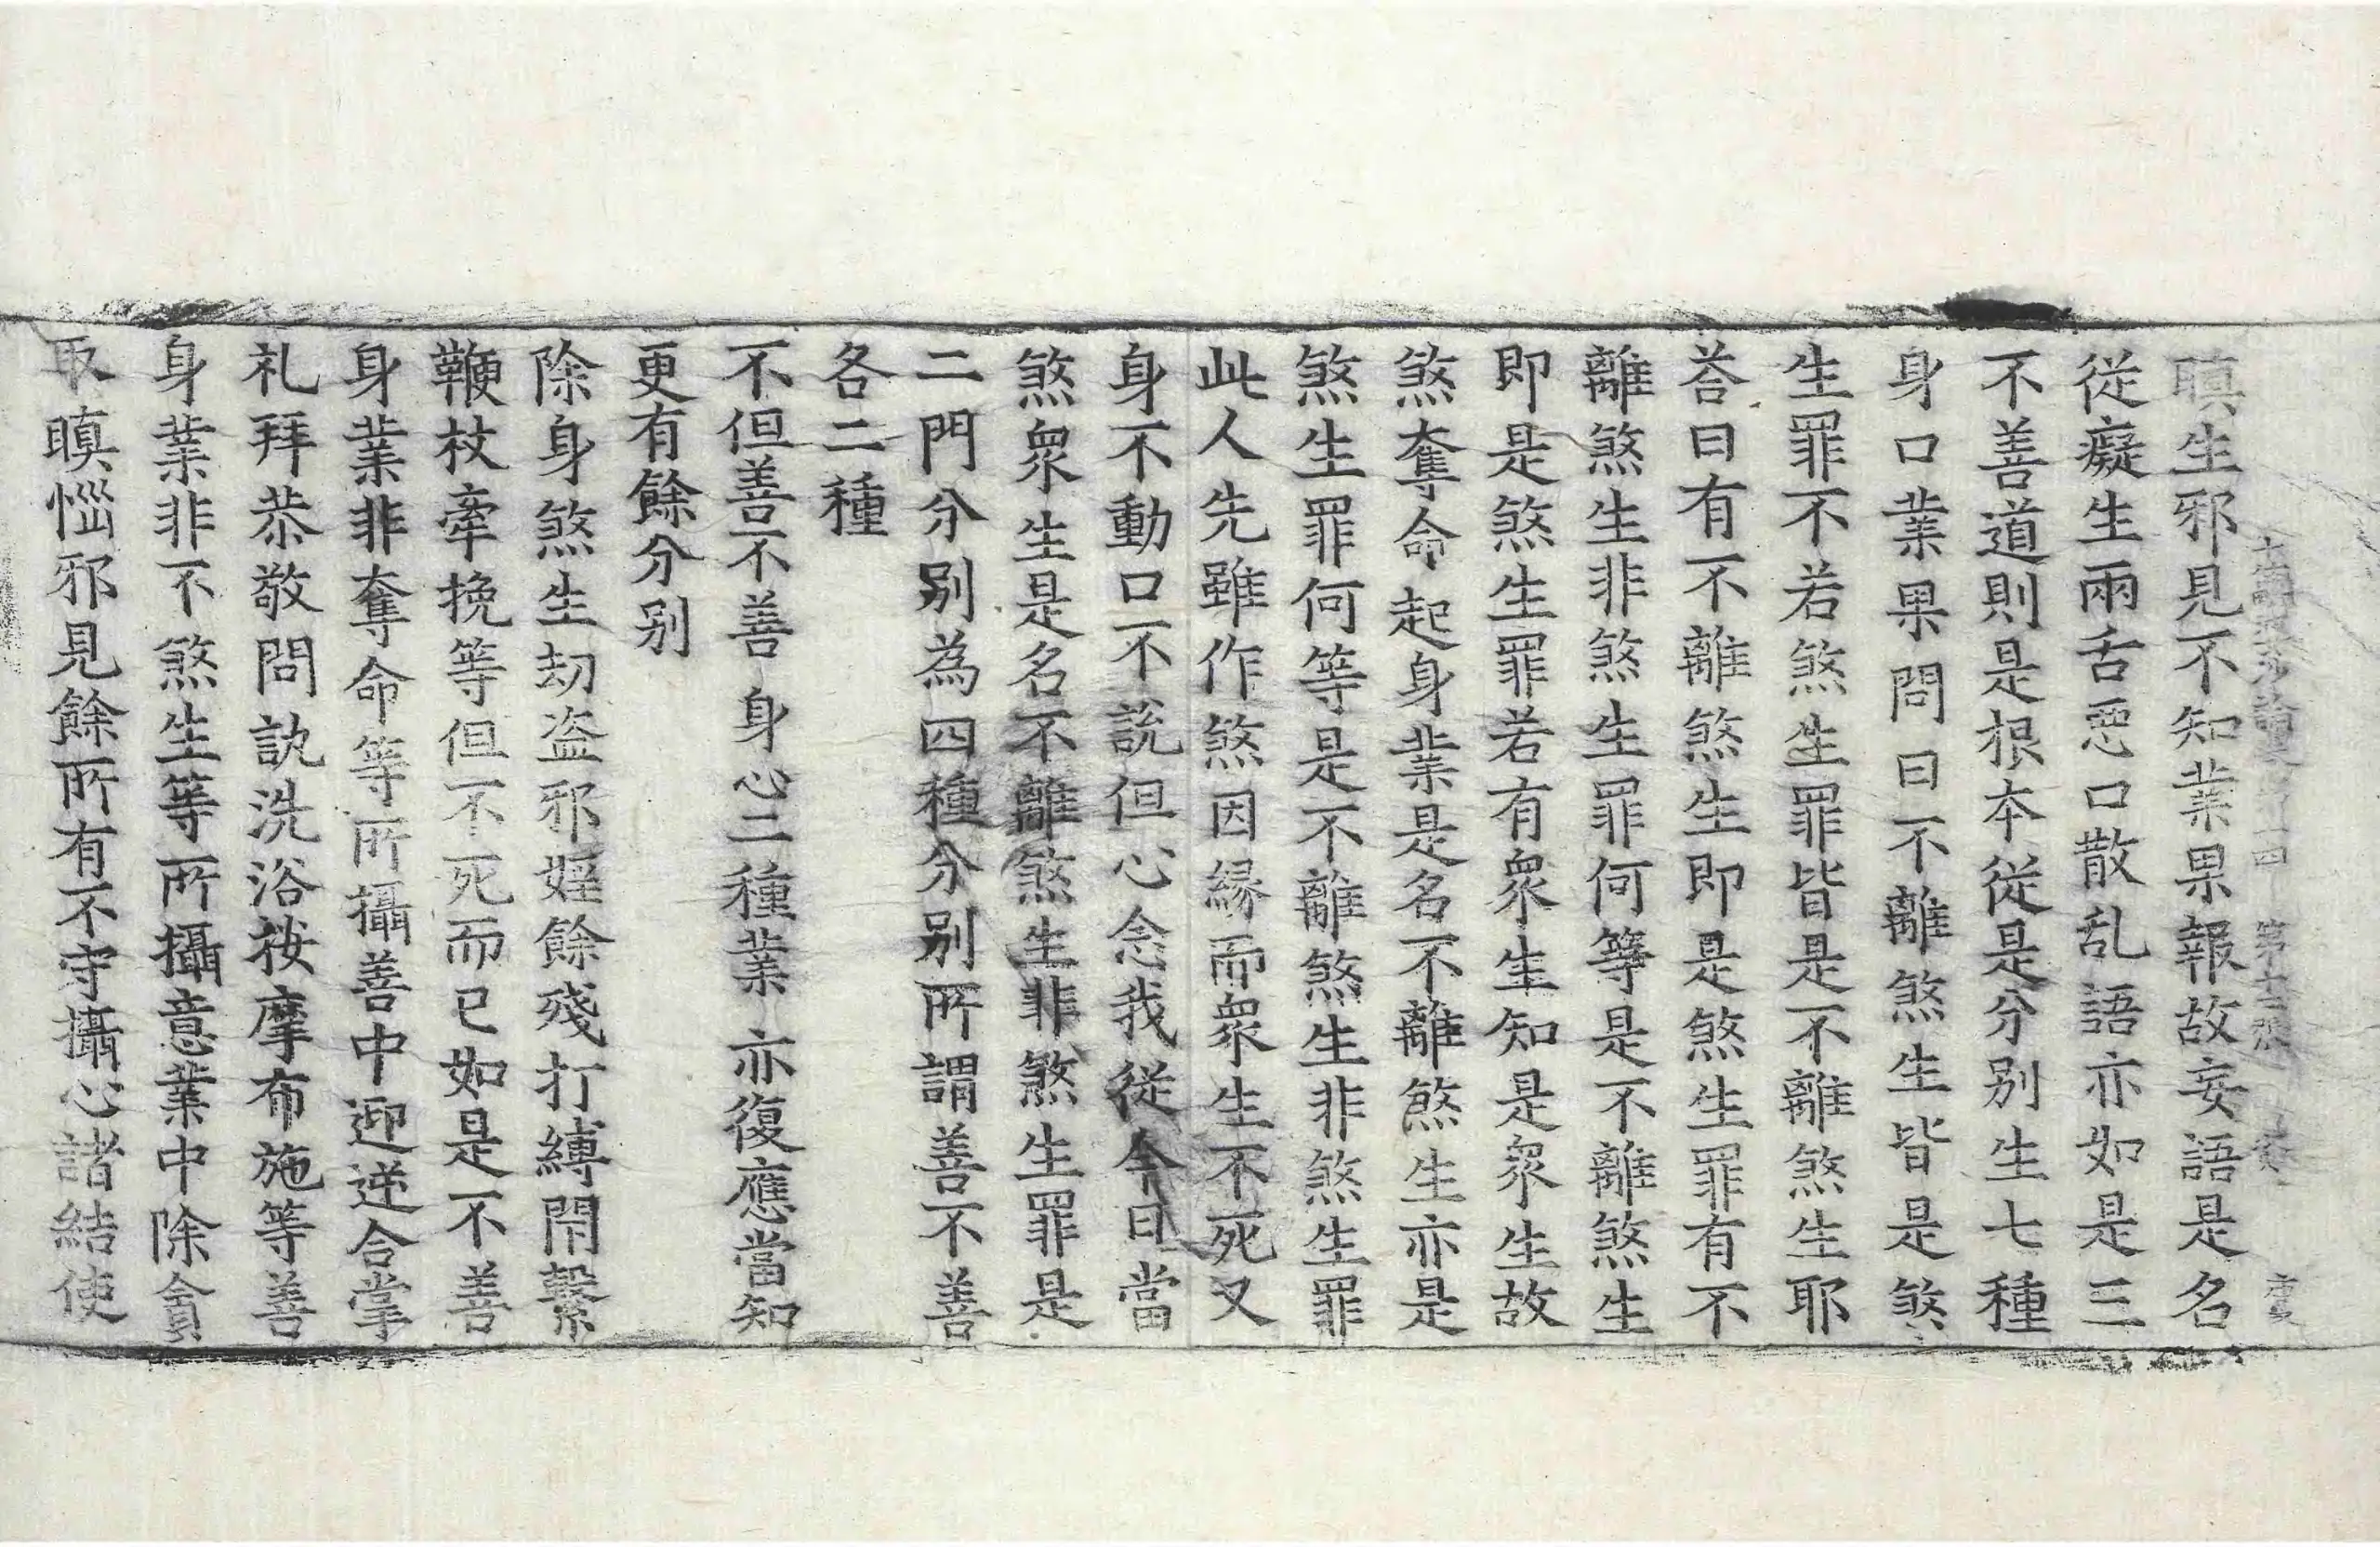 十住毗婆沙論卷第十四 第十三張
瞋生邪見不知業果報故妄語是名
從癡生兩舌惡口散乱語亦如是三
不善道則是根本從是分別生七種
身口業果問曰不離煞生皆是煞
生罪不若煞生罪皆是不離煞生耶
荅曰有不離煞生即是煞生罪有不
離煞生非煞生罪何等是不離煞生
即是煞生罪若有衆生知是衆生故
煞奪命起身業是名不離煞生亦是
煞生罪何等是不離煞生非煞生罪
此人先雖作煞因縁而衆生不死又
身不動口不說但心念我從今日當
煞衆生是名不離煞生非煞生罪是
二門分別為四種分別所謂善不善
各二種
不但善不善 身心二種業 亦復應當知
更有餘分別
除身煞生劫盗邪婬餘殘打縛閇繫
鞭杖牽挽等但不死而已如是不善
身業非奪命等所攝善中迎逆合掌
礼拜恭敬問訊洗浴按摩布施等善
身業非不煞生等所攝意業中除貪
取瞋惱邪見餘所有不守攝心諸結使